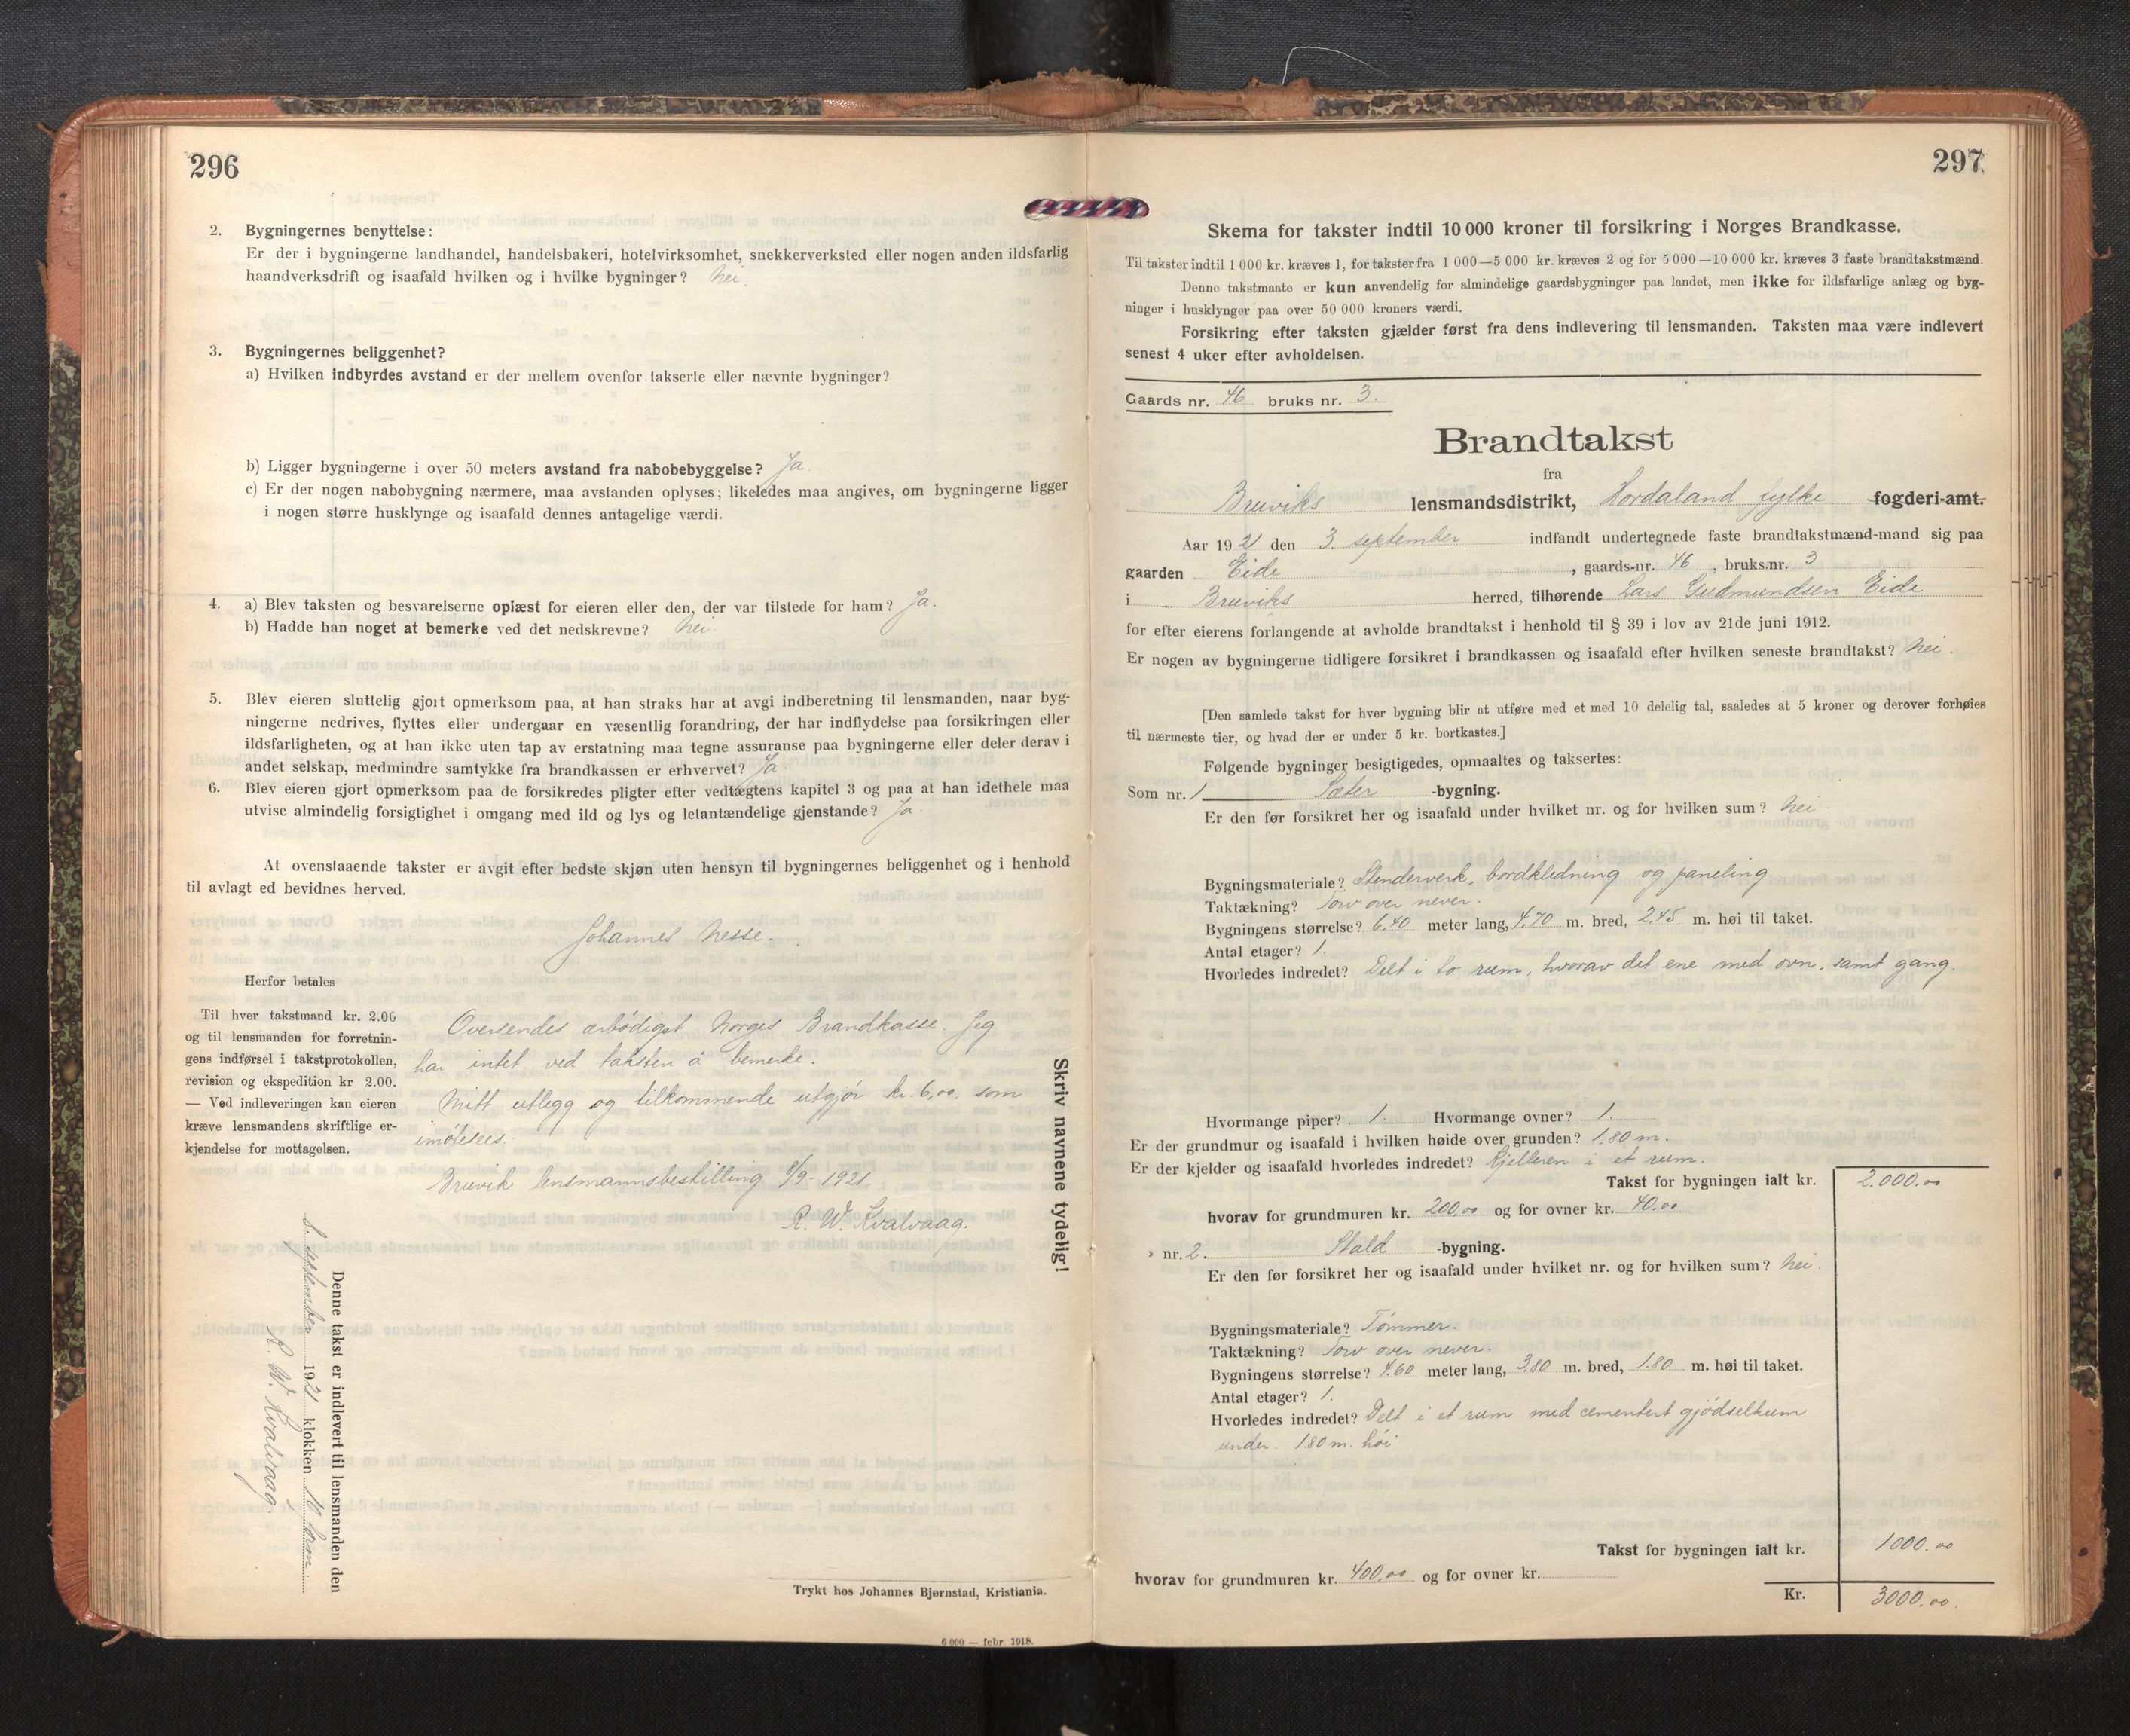 296
2. Bygningernes benyttelse:
Er der i bygningerne landhandel, handelsbakeri, hotelvirksomhet, snekkerverksted eller nogen anden ildsfarlig
haandverksdrift og isaafald hvilken og i hvilke bygninger? Nei.
3. Bygningernes beliggenhet?
a) Hvilken indbyrdes avstand er der mellem ovenfor takserte eller nævnte bygninger?
b) Ligger bygningerne i over 50 meters avstand fra nabobebyggelse? Ja.
c) Er der nogen nabobygning nærmere, maa avstanden oplyses; likeledes maa angives, om bygningerne ligger
i nogen større husklynge og isaafald dennes antagelige værdi.
4. a) Blev taksten og besvarelserne oplæst for eieren eller den, der var tilstede for ham? Ja.
b) Hadde han noget at bemerke ved det nedskrevne? Nei.
5. Blev eieren sluttelig gjort opmerksom paa, at han straks har at avgi indberetning til lensmanden, naar byg-
ningerne nedrives, flyttes eller undergaar en væsentlig forandring, der har indflydelse paa forsikringen eller
ildsfarligheten, og at han ikke uten tap av erstatning maa tegne assuranse paa bygningerne eller deler derav i
andet selskap, medmindre samtykke fra brandkassen er erhvervet? Ja
6. Blev eieren gjort opmerksom paa de forsikredes pligter efter vedtægtens kapitel 3 og paa at han idethele maa
utvise almindelig forsigtighet i omgang med ild og lys og letantændelige gjenstande? Ja.
At ovenstaaende takster er avgit efter bedste skjøn uten hensyn til bygningernes beliggenhet og i henhold
til avlagt ed bevidnes herved.
Johannes Nesse.
Herfor betales
Til hver takstmand kr. 2.00
og til lensmanden for forretnin-
gens indførsel i takstprotokollen,
revision og ekspedition kr 2.00.
— Ved indleveringen kan eieren
kræve lensmandens skriftlige er-
kjendelse for mottagelsen.
Oversendes ærbødigst Norges Brandkasse. Jeg
har intet ved taksten å bemerke.
Mitt utlegg og tilkommende utgjør kr. 6,00, som
imøtesees.
Bruvik lensmannsbestilling 8/9-1921.
R. W. Kvalvaag.
Skriv navnene tydelig!
Denne takst er indlevert til lensmanden den
6. september 1921 klokken 11 form.
R. W. Kvalvaag.
Trykt hos Johannes Bjørnstad, Kristiania.
6 000 — febr. 1918.
297
Skema for takster indtil 10 000 kroner til forsikring i Norges Brandkasse.
Til takster indtil 1 000 kr. kræves 1, for takster fra 1 000—5 000 kr. kræves 2 og for 5 000—10 000 kr. kræves 3 faste brandtakstmænd.
Denne takstmaate er kun anvendelig for almindelige gaardsbygninger paa landet, men ikke for ildsfarlige anlæg og byg-
ninger i husklynger paa over 50 000 kroners værdi.
Forsikring efter taksten gjælder først fra dens indlevering til lensmanden. Taksten maa være indlevert
senest 4 uker efter avholdelsen.
Gaards nr. 46 bruks nr. 3.
Brandtakst
fra
Bruviks lensmandsdistrikt, Hordaland fylke fogderi-amt.
Aar 1921 den 3. september indfandt undertegnede faste brandtakstmænd-mand sig paa
gaarden Eide, gaards-nr. 46, bruks.nr. 3
i Bruviks herred, tilhørende Lars Gudmundsen Eide
for efter eierens forlangende at avholde brandtakst i henhold til § 39 i lov av 21de juni 1912.
Er nogen av bygningerne tidligere forsikret i brandkassen og isaafald efter hvilken seneste brandtakst? Nei.
[Den samlede takst for hver bygning blir at utføre med et med 10 delelig tal, saaledes at 5 kroner og derover forhøies
til nærmeste tier, og hvad der er under 5 kr. bortkastes.]
Følgende bygninger besigtigedes, opmaaltes og taksertes:
Som nr. 1 Sæter -bygning.
Er den før forsikret her og isaafald under hvilket nr. og for hvilken sum? Nei.
Bygningsmateriale? Stenderverk, bordkledning og paneling.
Taktækning? Torv over never.
Bygningens størrelse? 6.40 meter lang, 4.70 m. bred, 2.45 m. høi til taket.
Antal etager? 1.
Hvorledes indredet? Delt i to rum, hvorav det ene med ovn, samt gang.
Hvormange piper? 1. Hvormange ovner? 1.
Er der grundmur og isaafald i hvilken høide over grunden? 1.80 m.
Er der kjelder og isaafald hvorledes indredet? Kjelleren i et rum.
Takst for bygningen ialt kr. 2.000.00
hvorav for grundmuren kr. 200.00 og for ovner kr. 40.00
nr. 2. Stald -bygning.
Er den før forsikret her og isaafald under hvilket nr. og for hvilken sum? Nei.
Bygningsmateriale? Tømmer.
Taktækning? Torv over never.
Bygningens størrelse? 4.60 meter lang, 3.80 m. bred, 1.80 m. høi til taket.
Antal etager? 1.
Hvorledes indredet? Delt i et rum med cementert gjødselkum
under. 1.80 m. høi
Takst for bygningen ialt kr. 1000.00
hvorav for grundmuren kr. 400.00 og for ovner kr.
Kr. 3000.00.